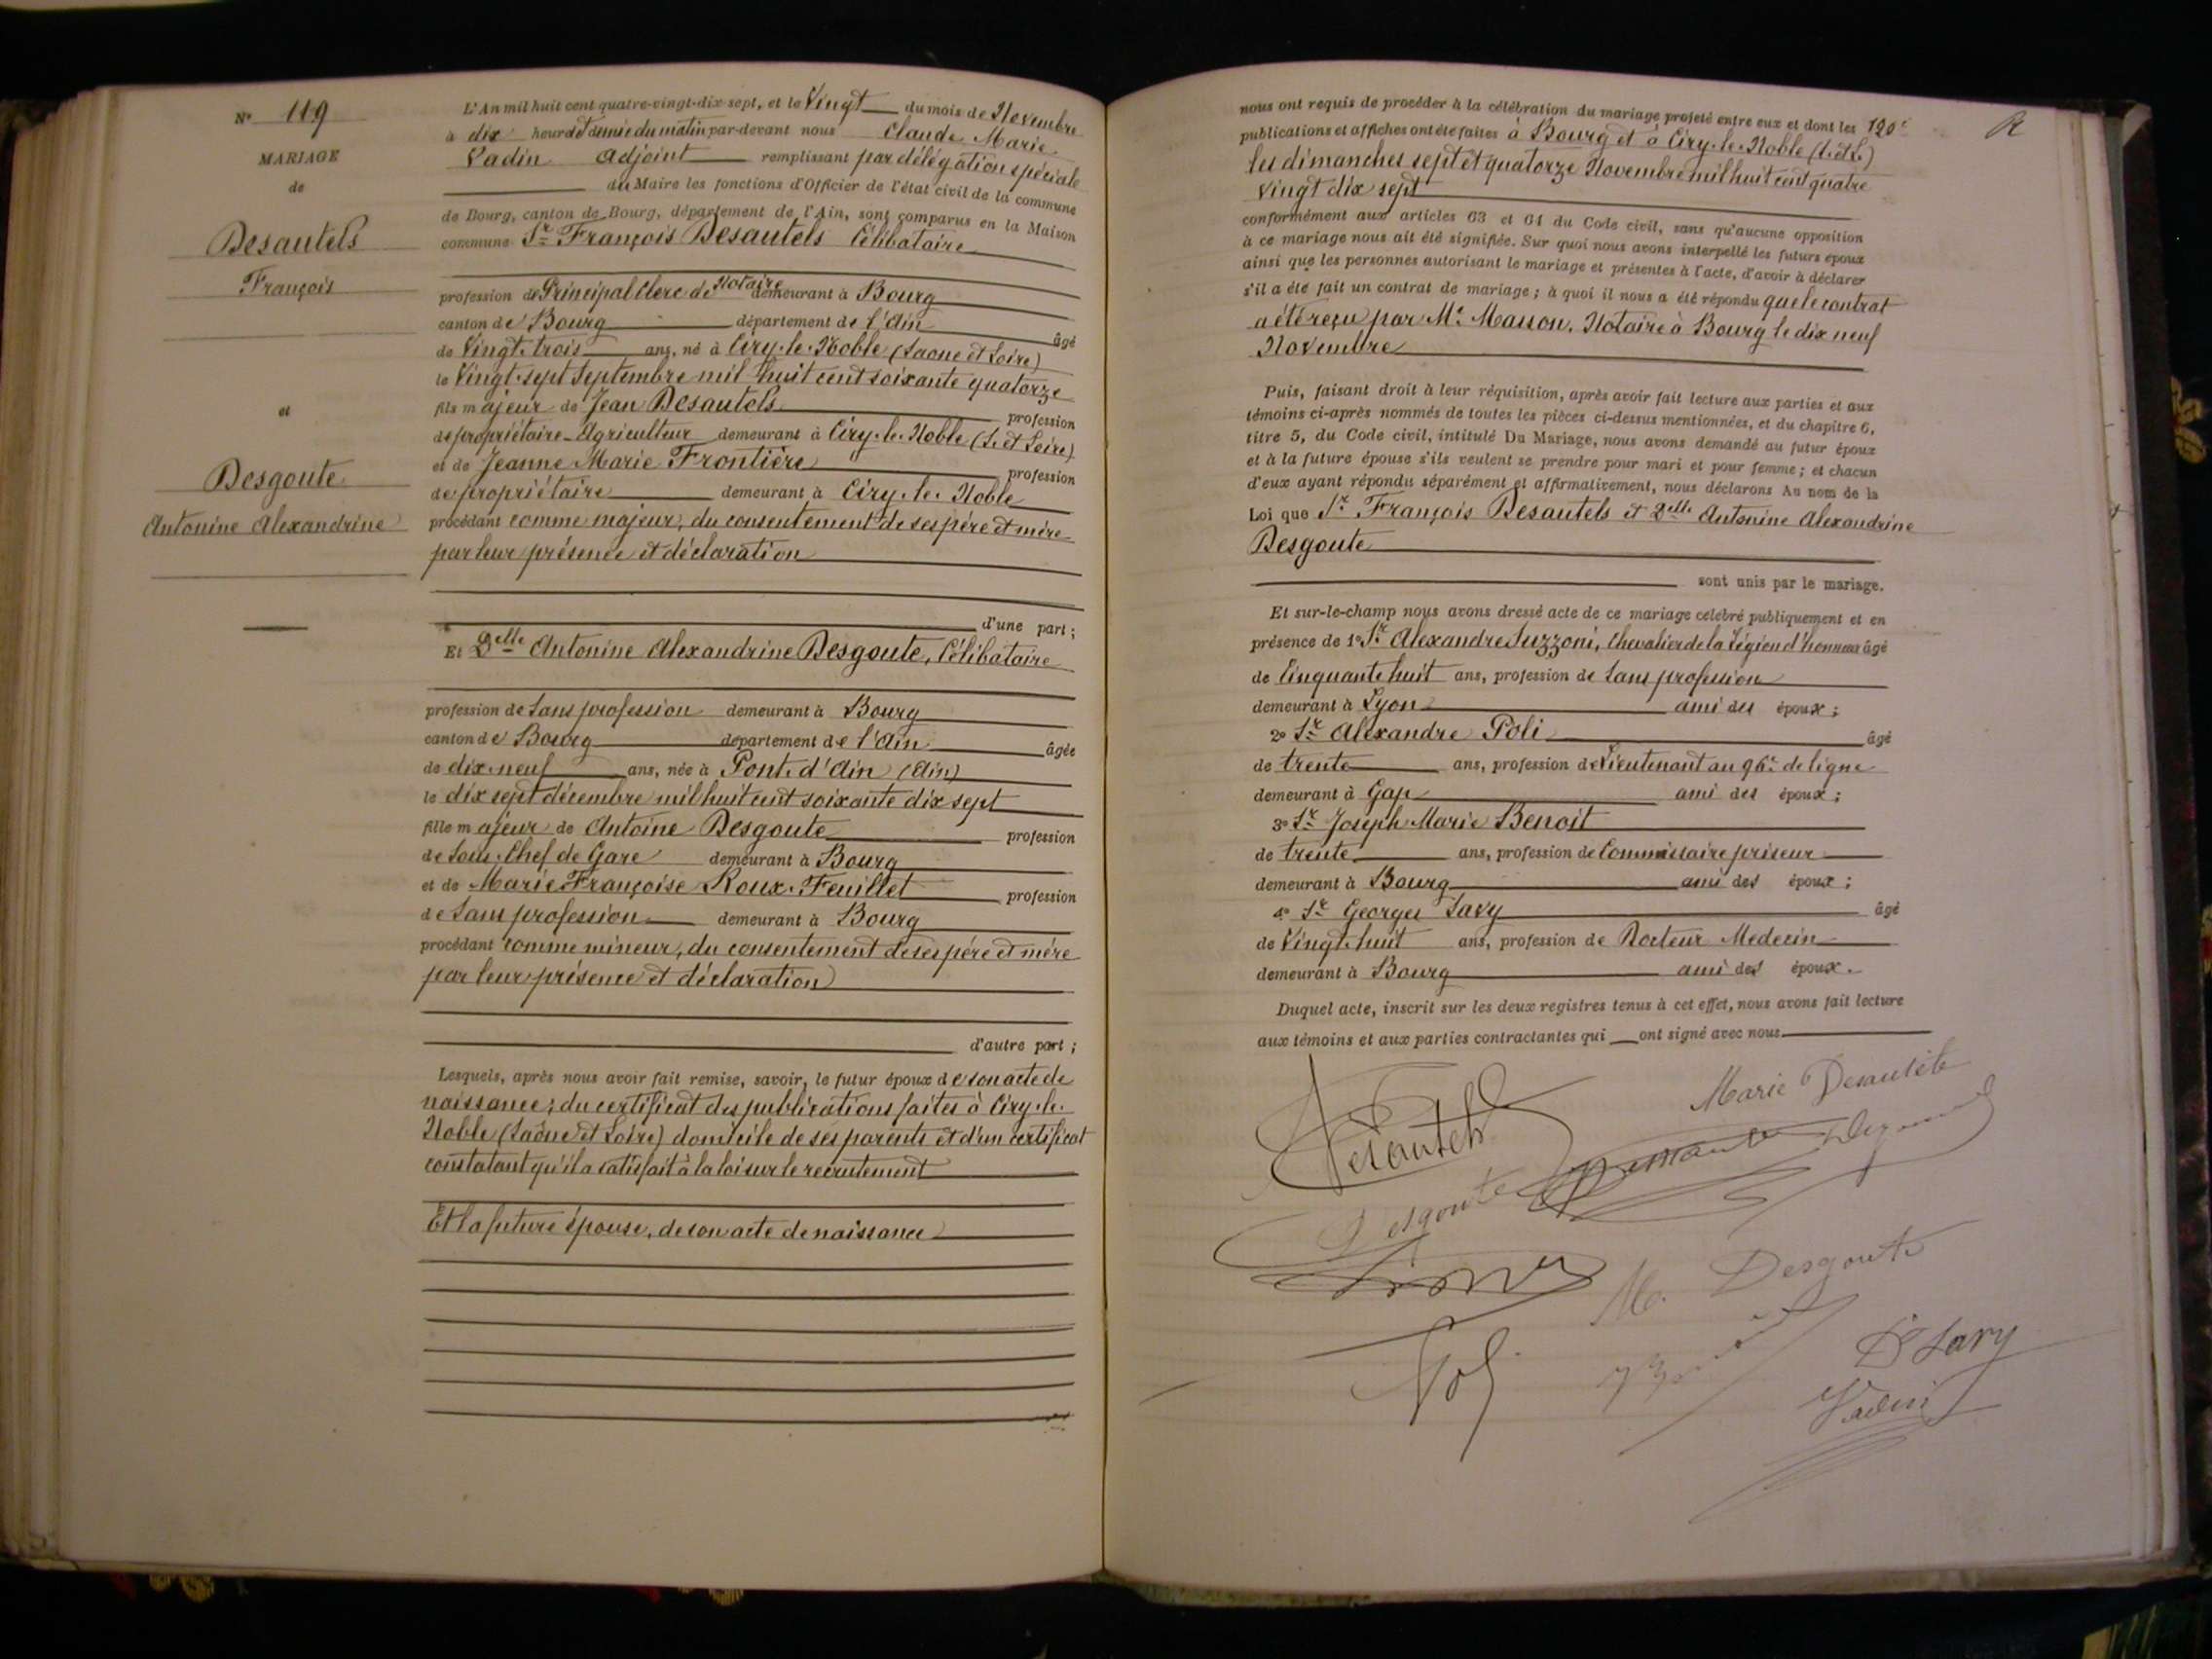 N° 119
MARIAGE
de
Desautels
François
et
Desgoute
Antonine Alexandrine
L'An mil huit cent quatre-vingt-dix-sept, et le Vingt du mois de Novembre
à dix heures et demie du matin par-devant nous Claude Marie
Vadin adjoint remplissant par délégation spéciale
du Maire les fonctions d'Officier de l'état civil de la commune
de Bourg, canton de Bourg, département de l'Ain, sont comparus en la Maison
commune Sr François Desautels Célibataire
profession de Principal Clerc de Notaire demeurant à Bourg
canton de Bourg département de l'Ain âgé
de Vingt-trois ans, né à Ciry-le-Noble (Saone et Loire)
le Vingt-sept Septembre mil huit cent soixante quatorze
fils majeur de Jean Desautels profession
de propriétaire-Agriculteur demeurant à Ciry-le-Noble (S. et Loire)
et de Jeanne Marie Frontière profession
de propriétaire demeurant à Ciry-le-Noble
procédant comme majeur, du consentement de ses père et mère
par leur présence et déclaration
d'une part ;
Et Delle Antonine Alexandrine Desgoute, Célibataire
profession de Sans profession demeurant à Bourg
canton de Bourg département de l'Ain âgée
de dix-neuf ans, née à Pont-d'Ain (Ain)
le dix sept décembre mil huit cent soixante dix sept
fille majeur de Antoine Desgoute profession
de Sous-Chef de Gare demeurant à Bourg
et de Marie Françoise Roux-Feuillet profession
de Sans profession demeurant à Bourg
procédant comme mineur, du consentement de ses père et mère
par leur présence et déclaration
d'autre part ;
Lesquels, après nous avoir fait remise, savoir, le futur époux de son acte de
naissance ; du certificat des publications faites à Ciry-le-
Noble (Saône et Loire) domicile de ses parents et d'un certificat
constatant qu'il a satisfait à la loi sur le recrutement
Et la future épouse, de son acte de naissance
R
nous ont requis de procéder à la célébration du mariage projeté entre eux et dont les 120e
publications et affiches ont été faites à Bourg et à Ciry-le-Noble (S. et L.)
les dimanches sept et quatorze Novembre mil huit cent quatre
vingt dix sept
conformément aux articles 63 et 64 du Code civil, sans qu'aucune opposition
à ce mariage nous ait été signifiée. Sur quoi nous avons interpellé les futurs époux
ainsi que les personnes autorisant le mariage et présentes à l'acte, d'avoir à déclarer
s'il a été fait un contrat de mariage ; à quoi il nous a été répondu que le contrat
a été reçu par Me Masson, Notaire à Bourg le dix neuf
Novembre
Puis, faisant droit à leur réquisition, après avoir fait lecture aux parties et aux
témoins ci-après nommés de toutes les pièces ci-dessus mentionnées, et du chapitre 6,
titre 5, du Code civil, intitulé Du Mariage, nous avons demandé au futur époux
et à la future épouse s'ils veulent se prendre pour mari et pour femme ; et chacun
d'eux ayant répondu séparément et affirmativement, nous déclarons Au nom de la
Loi que Sr François Desautels et Delle Antonine Alexandrine
Desgoute
sont unis par le mariage.
Et sur-le-champ nous avons dressé acte de ce mariage célébré publiquement et en
présence de 1° Sr Alexandre Suzzoni, Chevalier de la Légion d'honneur âgé
de Cinquante huit ans, profession de Sans profession
demeurant à Lyon ami des époux ;
2° Sr Alexandre Poli âgé
de trente ans, profession de Lieutenant au 96e de ligne
demeurant à Gap ami des époux ;
3° Sr Joseph Marie Benoit
de trente ans, profession de Commissaire priseur
demeurant à Bourg ami des époux ;
4° Sr Georges Savy âgé
de Vingt-huit ans, profession de Docteur Medecin
demeurant à Bourg ami des époux.
Duquel acte, inscrit sur les deux registres tenus à cet effet, nous avons fait lecture
aux témoins et aux parties contractantes qui ont signé avec nous.
Marie Desautels
Desautels
Desgoute
M. Desgoute
Poli
Dr Savy
Vadin